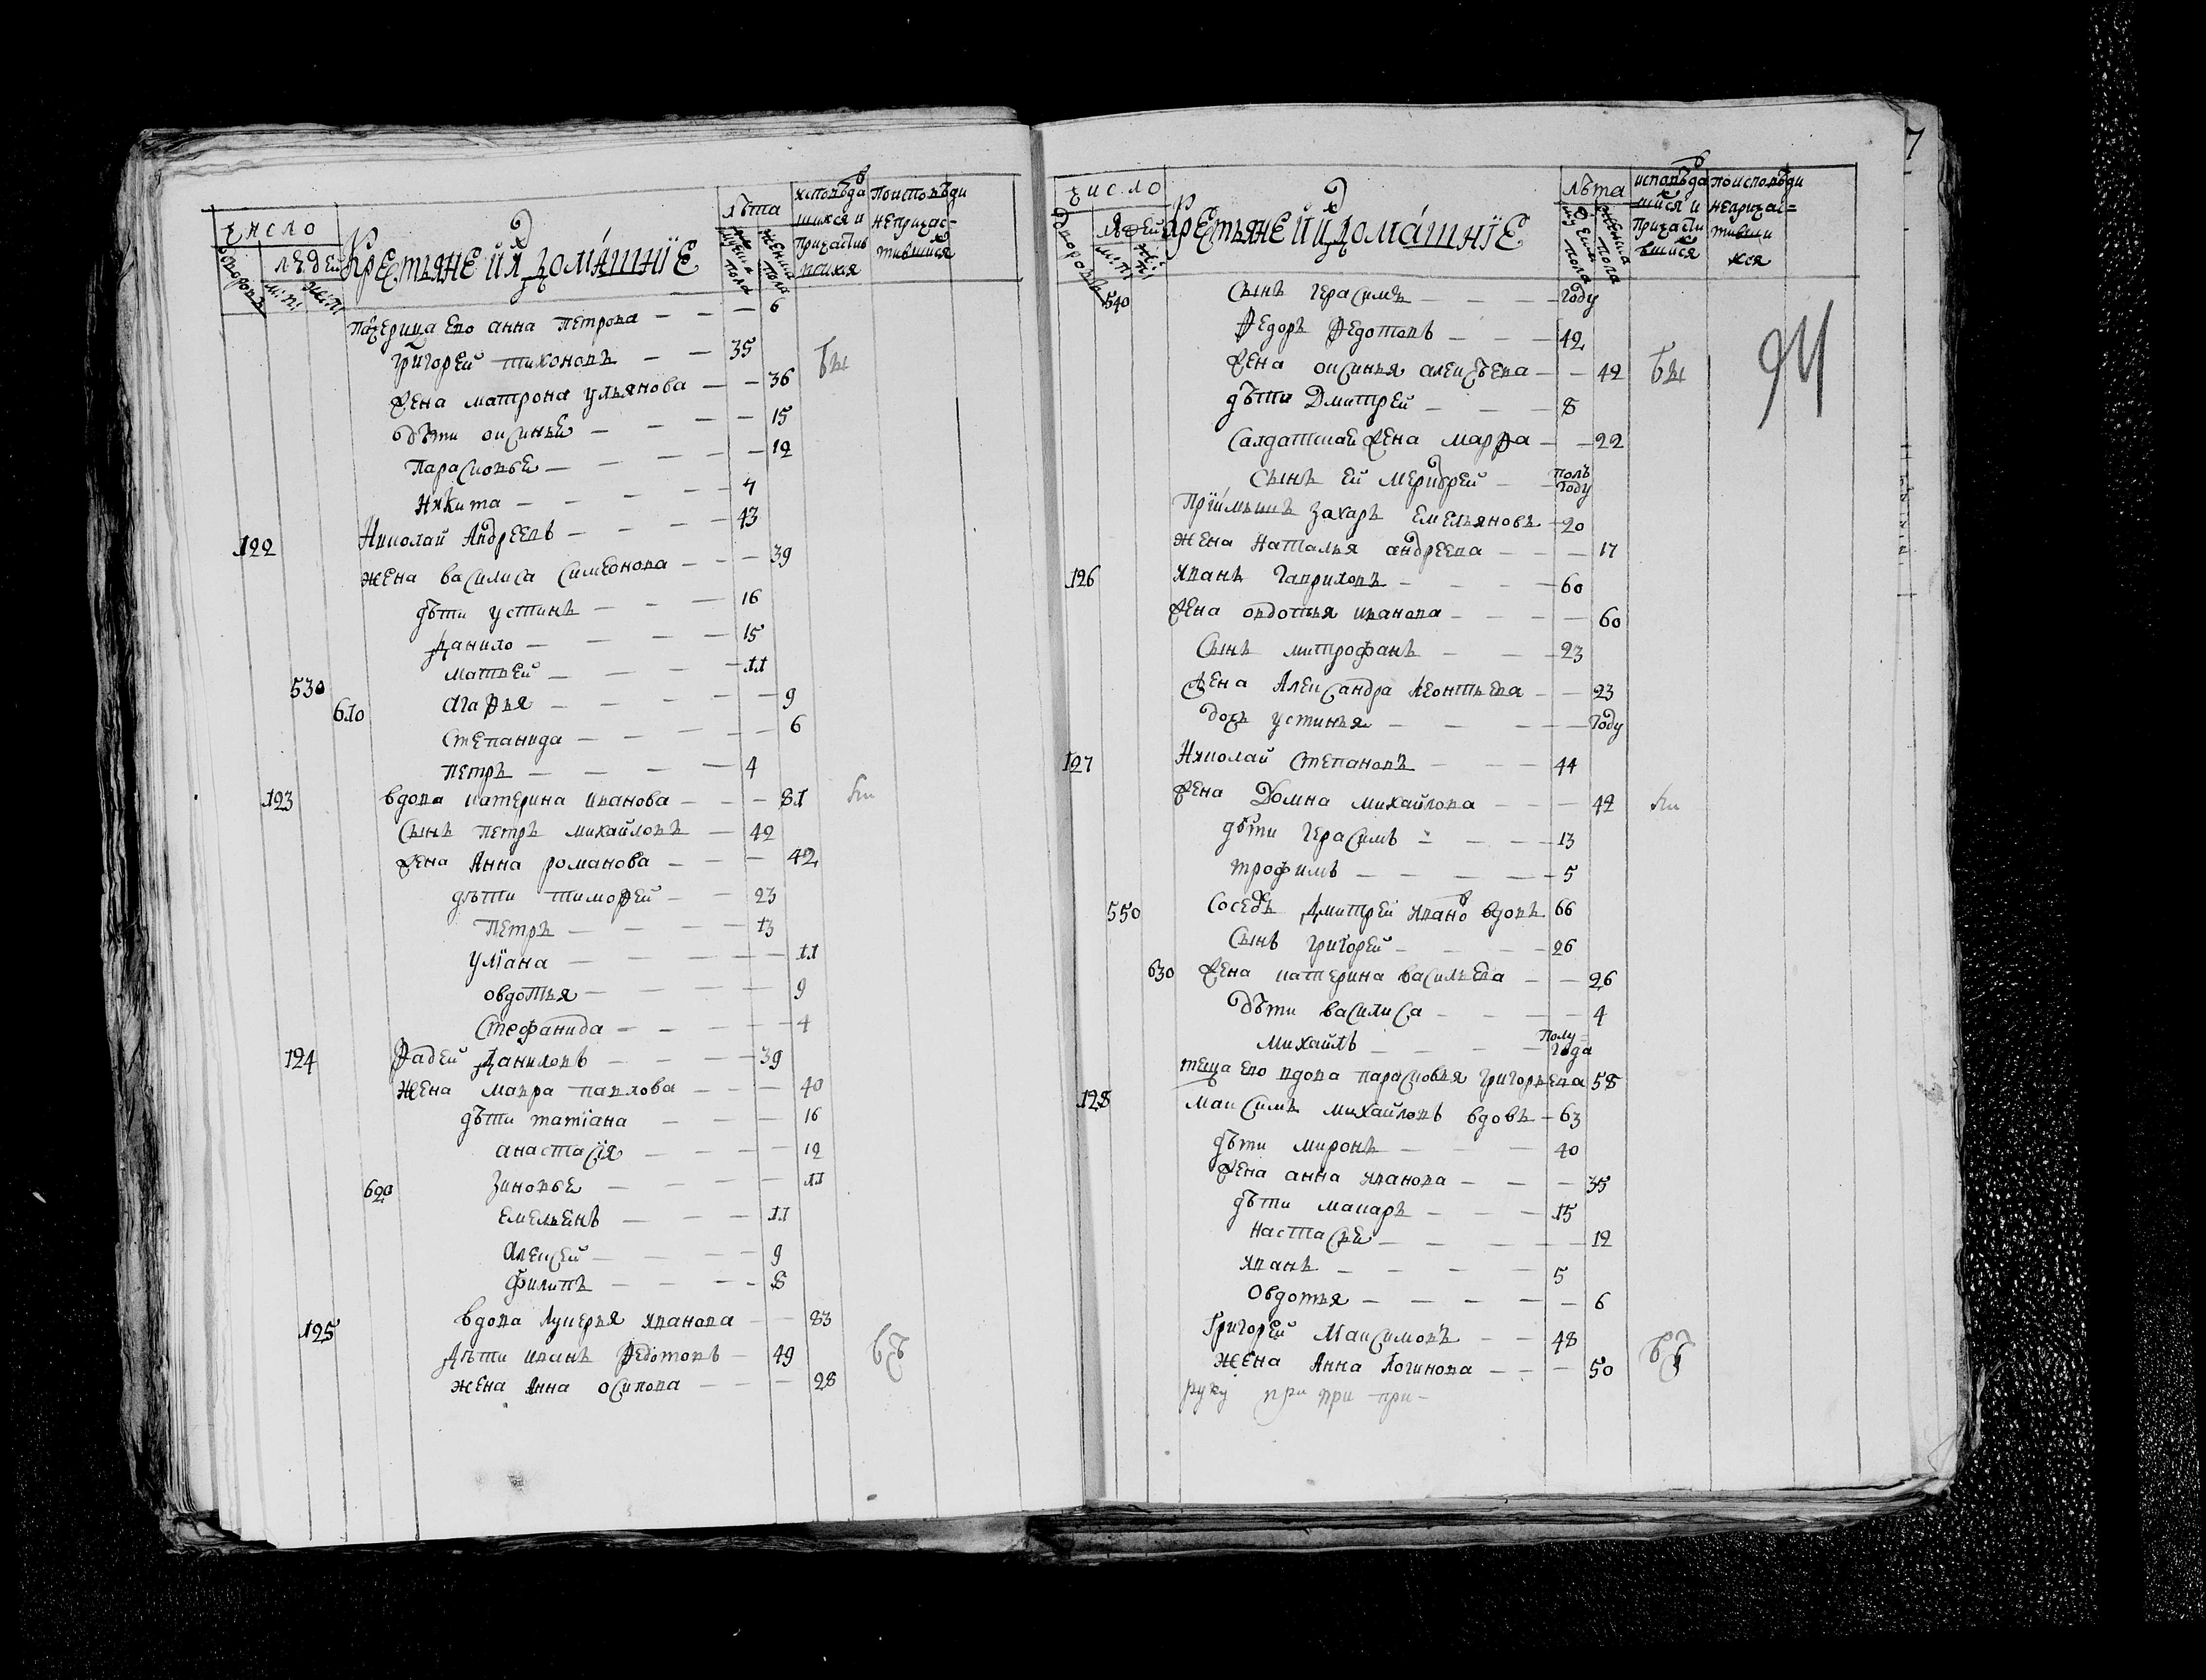 число
дворовъ
людей
м: п:
ж: п:
Крестьяне и ихъ домашние
лѣта
мужеска пола
женска пола
исповѣда
вшихся и
причастив
шихся
по исповѣди
непричас-
тившихся
Падчерица ево анна петрова — — — 6
григорей тихоновъ — — 35
жена матрона ульянова — — 36
дѣти оксинья — — — 15
парасковья — — — — 12
никита — — — — 4
122 Николай Андреевъ — — — 43
жена василиса симеонова — — — 39
дѣти устинъ — — — 16
данило — — — — 15
матвей — — — — 11
530 610 агафья — — — — 9
степанида — — — — 6
петръ — — — — 4
123 вдова катерина иванова — — — 81
сынъ петръ михайловъ — 42
жена Анна романова — — — 42
дѣти тимофей — — 23
петръ — — — — 13
улїана — — — — 11
овдотья — — — — 9
стефанида — — — — 4
124 Фадей даниловъ — — — 39
жена мавра павлова — — — 40
дѣти татїана — — — 16
анастасїя — — — — 12
620 зиновья — — — — 11
емельянъ — — — 11
алексей — — — — 9
филипъ — — — — 8
125 вдова лукерья иванова — — 83
дѣти иванъ федотовъ — 49
жена Анна осипова — — — 28
7
число
дворовъ
людей
м: п:
ж: п:
Крестьяне и ихъ домашнїе
лѣта
мужеска пола
женска пола
исповѣда
вшихся и
причасти
вшихся
по исповѣди
непричас=
тивши
хся
540 сынъ герасимъ — — — году
федоръ федотовъ — — — 42
жена оксинья алексѣева — — 42
дѣти Дмитрей — — — 8
салдатская жена марфа — — 22
сынъ ей — — полъ
году
Прїимышъ захаръ емельяновъ — 20
жена наталья андреева — — — 17
126 иванъ гавриловъ — — — 60
жена овдотья иванова — — — — 60
сынъ митрофанъ — — — 23
жена Александра леонтьева — — 23
дочь устинья — — — — году
127 Николай степановъ — — — 44
жена Домна михайлова — — — 42
дѣти герасимъ — — — 13
трофимъ — — — — 5
550 соседъ дмитрей ивановъ вдовъ 66
сынъ григорей — — — 26
630 жена катерина васильева — — 26
дѣти василиса — — — — 4
михайлъ — — — — полу-
года
теща ево вдова парасковья григорьева 58
128 максимъ михайловъ вдовъ — 63
дѣти миронъ — — — 40
жена анна иванова — — — 35
дѣти макаръ — — — 15
настасья — — — — 12
иванъ — — — — 5
овдотья — — — — — 6
григорей максимовъ — — 48
жена Анна логинова — — — 50
руку при при при-